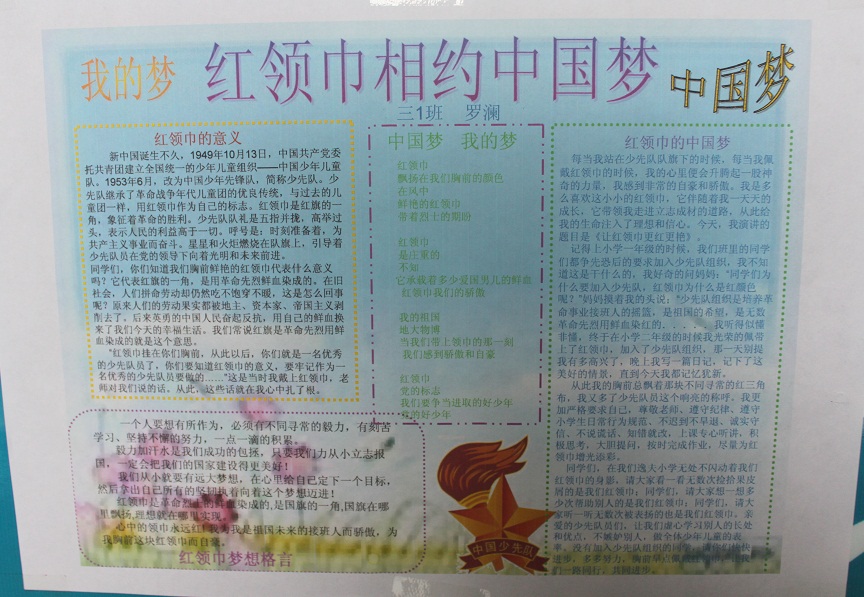 我的梦
红领巾相约中国梦
中国梦
三1班 罗澜
红领巾的意义
新中国诞生不久，1949年10月13日，中国共产党委
托共青团建立全国统一的少年儿童组织——中国少年儿童
队。1953年6月，改为中国少年先锋队，简称少先队。少
先队继承了革命战争年代儿童团的优良传统，与过去的儿
童团一样，用红领巾作为自己的标志。红领巾是红旗的一
角，象征着革命的胜利。少先队队礼是五指并拢，高举过
头，表示人民的利益高于一切。呼号是：时刻准备着，为
共产主义事业而奋斗。星星和火炬燃烧在队旗上，引导着
少先队员在党的领导下向着光明和未来前进。
同学们，你们知道我们胸前鲜艳的红领巾代表什么意义
吗？它代表红旗的一角，是用革命先烈鲜血染成的。在旧
社会，人们拼命劳动却仍然吃不饱穿不暖，这是怎么回事
呢？原来人们的劳动果实都被地主、资本家、帝国主义剥
削去了，后来英勇的中国人民奋起反抗，用自己的鲜血换
来了我们今天的幸福生活。我们常说红旗是革命先烈用鲜
血染成的就是这个意思。
“红领巾挂在你们胸前，从此以后，你们就是一名优秀
的少先队员了，你们要知道红领巾的意义，要牢记作为一
名优秀的少先队员要做的……”这是当时我戴上红领巾，老
师对我们说的话。从此，这些话就在我心中扎了根。
中国梦 我的梦
红领巾
飘扬在我们胸前的颜色
在风中
鲜艳的红领巾
带着烈士的期盼
红领巾
是庄重的
不知
它承载着多少爱国男儿的鲜血
红领巾我们的骄傲
我的祖国
地大物博
当我们带上领巾的那一刻
我们感到骄傲和自豪
红领巾
党的标志
我们要争当进取的好少年
的好少年
红领巾的中国梦
每当我站在少先队队旗下的时候，每当我佩
戴红领巾的时候，我的心里便会升腾起一股神
奇的力量。我感到非常的自豪和骄傲。我是多
么喜欢这小小的红领巾，它伴随着我一天天的
成长，它带领我走进立志成材的道路，从此给
我的生命注入了理想和信心。今天，我演讲的
题目是《让红领巾更红更艳》。
记得上小学一年级的时候，我们班里的同学
们都争先恐后的要求加入少先队组织，我不知
道这是干什么的，我好奇的问妈妈：“同学们为
什么要加入少先队，红领巾为什么是红颜色
呢？”妈妈摸着我的头说：“少先队组织是培养革
命事业接班人的摇篮，是祖国的希望，是无数
革命先烈用鲜血染红的．．．．．我听得似懂
非懂，终于在小学二年级的时候我光荣的佩带
上了红领巾，加入了少先队组织，那一天别提
我有多高兴了，晚上我写一篇日记，记下了这
美好的情景，直到今天我都记忆犹新。
从此我的胸前总飘着那块不同寻常的红三角
布，我又多了少先队员这个响亮的称呼。我更
加严格要求自己，尊敬老师、遵守纪律、遵守
小学生日常行为规范、不迟到不早退、诚实守
信、不说谎话、知错就改，上课专心听讲，积
极思考，大胆提问，按时完成作业，尽量为红
领巾增光添彩。
同学们，在我们逸夫小学无处不闪动着我们
红领巾的身影，请大家看一看无数次捡拾果皮
屑的是我们红领巾；同学们，请大家想一想多
少次帮助别人的是我们红领巾；同学们，请大
家听一听无数次被表扬的也是我们红领巾，亲
爱的少先队员们，让我们虚心学习别人的长处
和优点，不嫉妒别人，做全体少年儿童的表
率，没有加入少先队组织的同学，
进步，多多努力，胸前早点佩
们一路同行，共同进步。
一个人要想有所作为，必须有不同寻常的毅力，有刻苦
学习、坚持不懈的努力，一点一滴的积累。
毅力加汗水是我们成功的包揽，只要我们力从小立志报
国，一定会把我们的国家建设得更美好！
我们从小就要有远大梦想，在心里给自己定下一个目标，
然后拿出自己所有的坚韧执着向着这个梦想迈进！
红领巾是革命烈士的鲜血染成的,是国旗的一角,国旗在哪
里飘扬,理想就在哪里实现。
心中的领巾永远红!我为我是祖国未来的接班人而骄傲，为
我胸前这块红领巾而自豪。
红领巾梦想格言
中国少先队